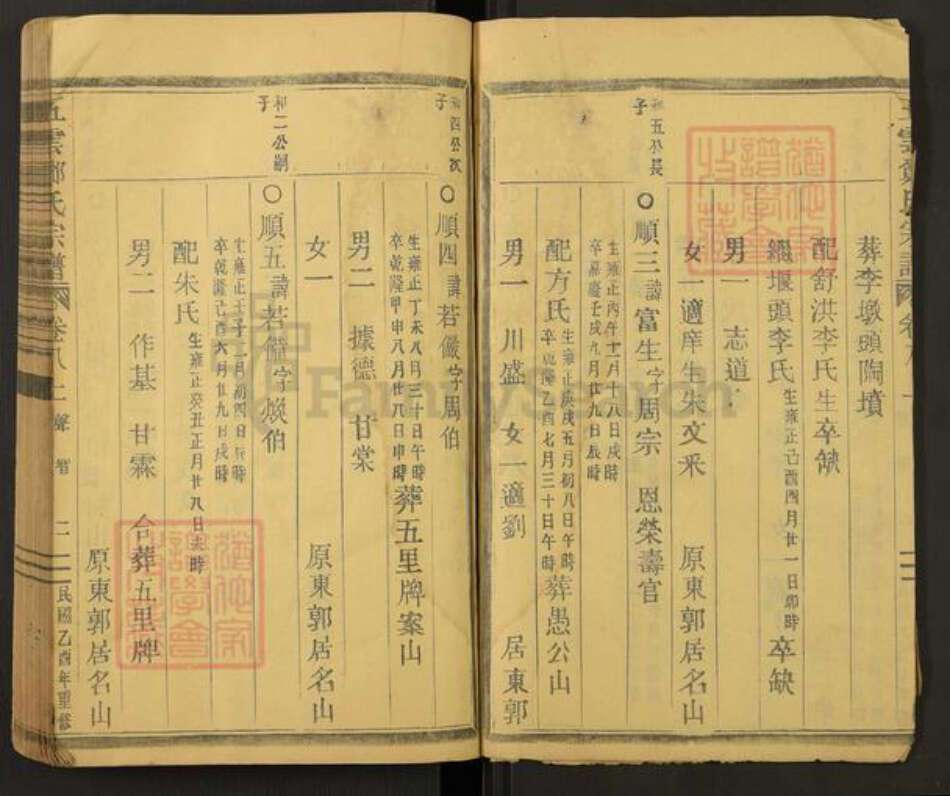 葬李墩頭陶墳
配舒洪李氏生卒缺
繼堰頭李氏生雍正己酉四月廿一日卯時卒缺
男一 志道
女一適庠生朱文采 原東郭居名山
和五公長子
順三諱富生字周宗 恩榮壽官
生雍正丙午十一月十八日戌時
卒嘉慶壬戌九月廿九日辰時
配方氏生雍正庚戌五月初八日午時
卒乾隆乙酉七月三十日午時葬愚公山
男一 川盛 女一適劉 居東郭
和四公次子
順四諱若儼字周伯
生雍正丁未八月三十日午時
卒乾隆甲申八月廿八日申時葬五里牌案山
男二 據德 甘棠
女一 原東郭居名山
和二公嗣子
順五諱若儼字煥伯
生雍正壬子二月初四日辰時
卒乾隆己酉六月廿九日戌時
配朱氏生雍正癸丑正月廿八日未時
男二 作基 甘霖 合葬五里牌
原東郭居名山
五雲鄭氏宗譜 卷八上 聲 智 二 民國乙酉年重修
FamilySearch